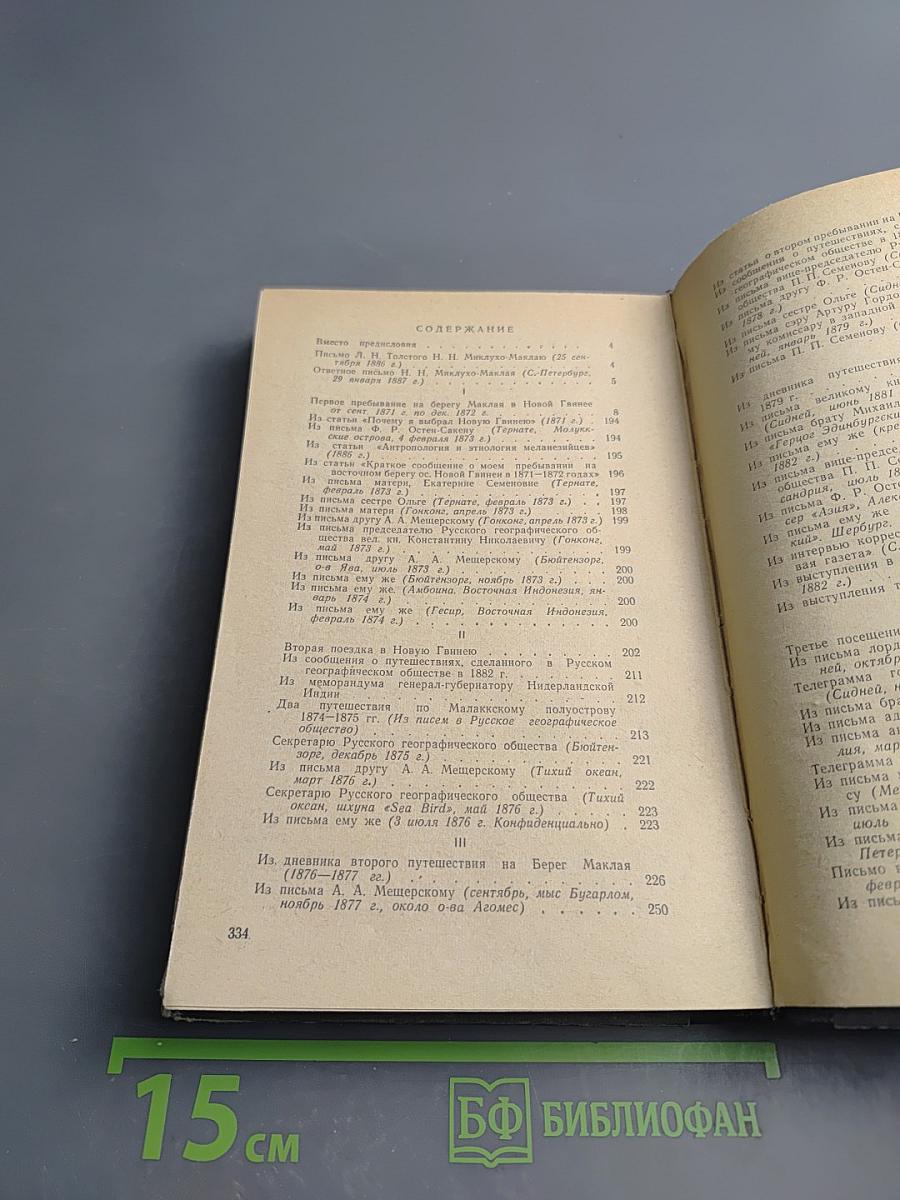 СОДЕРЖАНИЕ
Вместо предисловия . . . . . . . . . . 4
Письмо Л. Н. Толстого Н. Н. Миклухо-Маклаю (25 сен-
тября 1886 г.) . . . . . . . . . . 4
Ответное письмо Н. Н. Миклухо-Маклая (С.-Петербург,
29 января 1887 г.) . . . . . . . . . . 5
I
Первое пребывание на берегу Маклая в Новой Гвинее
от сент. 1871 г. по дек. 1872 г. . . . . . . . . 8
Из статьи «Почему я выбрал Новую Гвинею» (1871 г.) . 194
Из письма Ф. Р. Остен-Сакену (Тернате, Молукк-
ские острова, 4 февраля 1873 г.) . . . . . . 194
Из статьи «Антропология и этнология меланезийцев»
(1886 г.) . . . . . . . . . . 195
Из статьи «Краткое сообщение о моем пребывании на
восточном берегу ос. Новой Гвинеи в 1871—1872 годах» 196
Из письма матери, Екатерине Семеновне (Тернате,
февраль 1873 г.) . . . . . . . . . . 197
Из письма сестре Ольге (Тернате, февраль 1873 г.) . . 197
Из письма матери (Гонконг, апрель 1873 г.) . . . . 198
Из письма другу А. А. Мещерскому (Гонконг, апрель 1873 г.) 199
Из письма председателю Русского географического об-
щества вел. кн. Константину Николаевичу (Гонконг,
май 1873 г.) . . . . . . . . . . 199
Из письма другу А. А. Мещерскому (Бюйтензорг,
о-в Ява, июль 1873 г.) . . . . . . . . . 200
Из письма ему же (Бюйтензорг, ноябрь 1873 г.) . . . 200
Из письма ему же (Амбоина. Восточная Индонезия, ян-
варь 1874 г.) . . . . . . . . . . 200
Из письма ему же (Гесир, Восточная Индонезия,
февраль 1874 г.) . . . . . . . . . . 200
II
Вторая поездка в Новую Гвинею . . . . . . . . 202
Из сообщения о путешествиях, сделанного в Русском
географическом обществе в 1882 г. . . . . . . . 211
Из меморандума генерал-губернатору Нидерландской
Индии . . . . . . . . . . 212
Два путешествия по Малаккскому полуострову
1874—1875 гг. (Из писем в Русское географическое
общество) . . . . . . . . . . 213
Секретарю Русского географического общества (Бюйтен-
зорг, декабрь 1875 г.) . . . . . . . . . . 221
Из письма другу А. А. Мещерскому (Тихий океан,
март 1876 г.) . . . . . . . . . . 222
Секретарю Русского географического общества (Тихий
океан, шхуна «Sea Bird», май 1876 г.) . . . . . 223
Из письма ему же (3 июля 1876 г. Конфиденциально) . 223
III
Из дневника второго путешествия на Берег Маклая
(1876—1877 гг.) . . . . . . . . . . 226
Из письма А. А. Мещерскому (сентябрь, мыс Бугарлом,
ноябрь 1877 г., около о-ва Агомес) . . . . . . 250
334
Из статьи о втором пребывании на
Из сообщения о путешествиях, с
географическом обществе в 1
Из письма вице-председателю Р
общества П. П. Семенову (С
Из письма другу Ф. Р. Остен-Са
1878 г.)
Из письма сестре Ольге (Сидне
Из письма сэру Артуру Гордо
му комиссару в западной
ней, январь 1879 г.)
Из письма П. П. Семенову (
Из дневника путешествия
1879 г.
Из письма великому кн
(Сидней, июнь 1881
Из письма брату Михаил
«Герцог Эдинбургски
Из письма ему же (кре
1882 г.)
Из письма вице-предсе
общества П. П. Се
сандрия, июль 18
Из письма Ф. Р. Осте
сер «Азия», Алек
Из письма ему же
кий». Шербург,
Из интервью коррес
вая газета» (С.
Из выступления в
1882 г.)
Из выступления т
Третье посещени
Из письма лорд
ней, октябр
Телеграмма го
(Сидней, н
Из письма бра
Из письма ад
Из письма ан
лия, мар
Телеграмма
Из письма
су (Ме
Из письма
июль
Из письма
Петер
Письмо
февр
Из пись
15 см
БФ БИБЛИОФАН